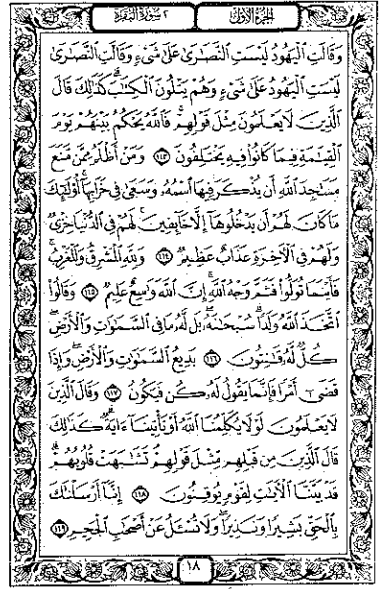 الجزء الأول
٢ سورة البقرة
وَقَالَتِ ٱلۡيَهُودُ لَيۡسَتِ ٱلنَّصَٰرَىٰ عَلَىٰ شَيۡءٖ وَقَالَتِ ٱلنَّصَٰرَىٰ
لَيۡسَتِ ٱلۡيَهُودُ عَلَىٰ شَيۡءٖ وَهُمۡ يَتۡلُونَ ٱلۡكِتَٰبَۗ كَذَٰلِكَ قَالَ
ٱلَّذِينَ لَا يَعۡلَمُونَ مِثۡلَ قَوۡلِهِمۡۚ فَٱللَّهُ يَحۡكُمُ بَيۡنَهُمۡ يَوۡمَ
ٱلۡقِيَٰمَةِ فِيمَا كَانُواْ فِيهِ يَخۡتَلِفُونَ ١١٣ وَمَنۡ أَظۡلَمُ مِمَّن مَّنَعَ
مَسَٰجِدَ ٱللَّهِ أَن يُذۡكَرَ فِيهَا ٱسۡمُهُۥ وَسَعَىٰ فِي خَرَابِهَآۚ أُوْلَٰٓئِكَ
مَا كَانَ لَهُمۡ أَن يَدۡخُلُوهَآ إِلَّا خَآئِفِينَۚ لَهُمۡ فِي ٱلدُّنۡيَا خِزۡيٞ
وَلَهُمۡ فِي ٱلۡأٓخِرَةِ عَذَابٌ عَظِيمٞ ١١٤ وَلِلَّهِ ٱلۡمَشۡرِقُ وَٱلۡمَغۡرِبُۚ
فَأَيۡنَمَا تُوَلُّواْ فَثَمَّ وَجۡهُ ٱللَّهِۚ إِنَّ ٱللَّهَ وَٰسِعٌ عَلِيمٞ ١١٥ وَقَالُواْ
ٱتَّخَذَ ٱللَّهُ وَلَدٗاۗ سُبۡحَٰنَهُۥۖ بَل لَّهُۥ مَا فِي ٱلسَّمَٰوَٰتِ وَٱلۡأَرۡضِۖ
كُلّٞ لَّهُۥ قَٰنِتُونَ ١١٦ بَدِيعُ ٱلسَّمَٰوَٰتِ وَٱلۡأَرۡضِۖ وَإِذَا
قَضَىٰٓ أَمۡرٗا فَإِنَّمَا يَقُولُ لَهُۥ كُن فَيَكُونُ ١١٧ وَقَالَ ٱلَّذِينَ
لَا يَعۡلَمُونَ لَوۡلَا يُكَلِّمُنَا ٱللَّهُ أَوۡ تَأۡتِينَآ ءَايَةٞۗ كَذَٰلِكَ
قَالَ ٱلَّذِينَ مِن قَبۡلِهِم مِّثۡلَ قَوۡلِهِمۡۘ تَشَٰبَهَتۡ قُلُوبُهُمۡۗ
قَدۡ بَيَّنَّا ٱلۡأٓيَٰتِ لِقَوۡمٖ يُوقِنُونَ ١١٨ إِنَّآ أَرۡسَلۡنَٰكَ
بِٱلۡحَقِّ بَشِيرٗا وَنَذِيرٗاۖ وَلَا تُسۡـَٔلُ عَنۡ أَصۡحَٰبِ ٱلۡجَحِيمِ ١١٩
١٨